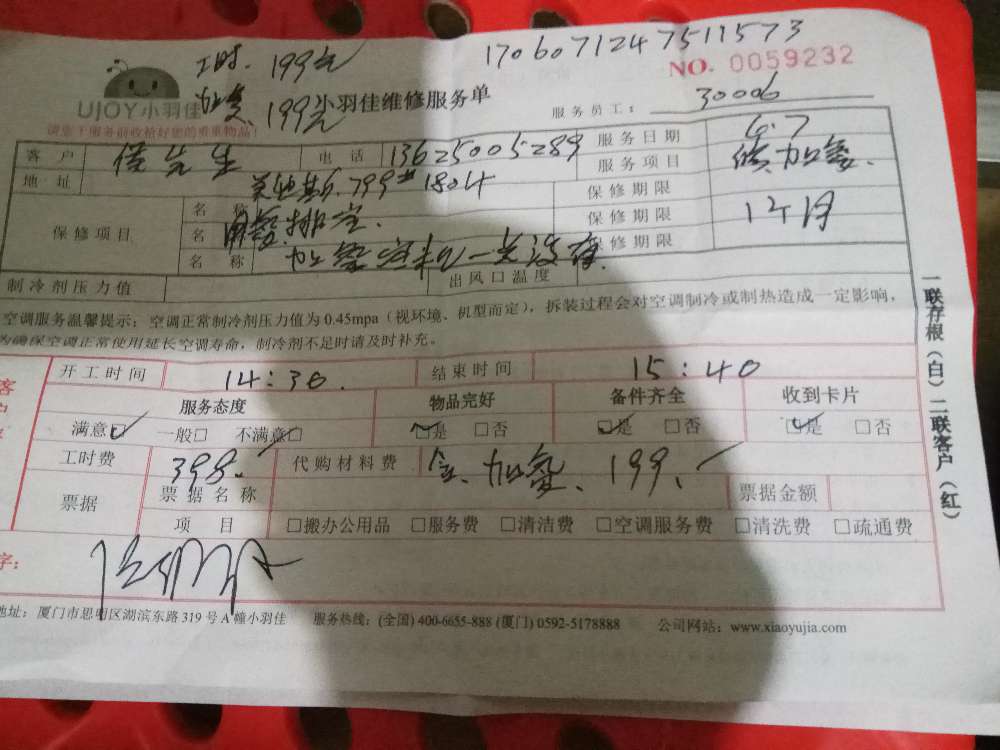 工时. 199元
17060712475111573
NO. 0059232
UJOY小羽佳
199元
小羽佳维修服务单
服务员工: 30006
请您下服务前收拾好您的贵重物品!
客户 先生 电话 13625005289 服务日期 6.7
地址 799# 1804 服务项目 加氟.
保修项目
名称
名称
名称
保修期限
保修期限 12个月
保修期限
制冷剂压力值 出风口温度
空调服务温馨提示: 空调正常制冷剂压力值为 0.45mpa (视环境、机型而定), 拆装过程会对空调制冷或制热造成一定影响,
为确保空调正常使用延长空调寿命, 制冷剂不足时请及时补充。
开工时间 14:30. 结束时间 15:40
服务态度 物品完好 备件齐全 收到卡片
满意☑ 一般□ 不满意□ ☑是 □否 ☑是 □否 ☑是 □否
工时费 398. 代购材料费 加氟、199、
票据 票据名称 票据金额
项目 □搬办公用品 □服务费 □清洁费 □空调服务费 □清洗费 □疏通费
字:
地址: 厦门市思明区湖滨东路 319 号 A 幢小羽佳 服务热线: (全国) 400-6655-888 (厦门) 0592-5178888 公司网站: www.xiaoyujia.com
一联存根(白) 二联客户(红)